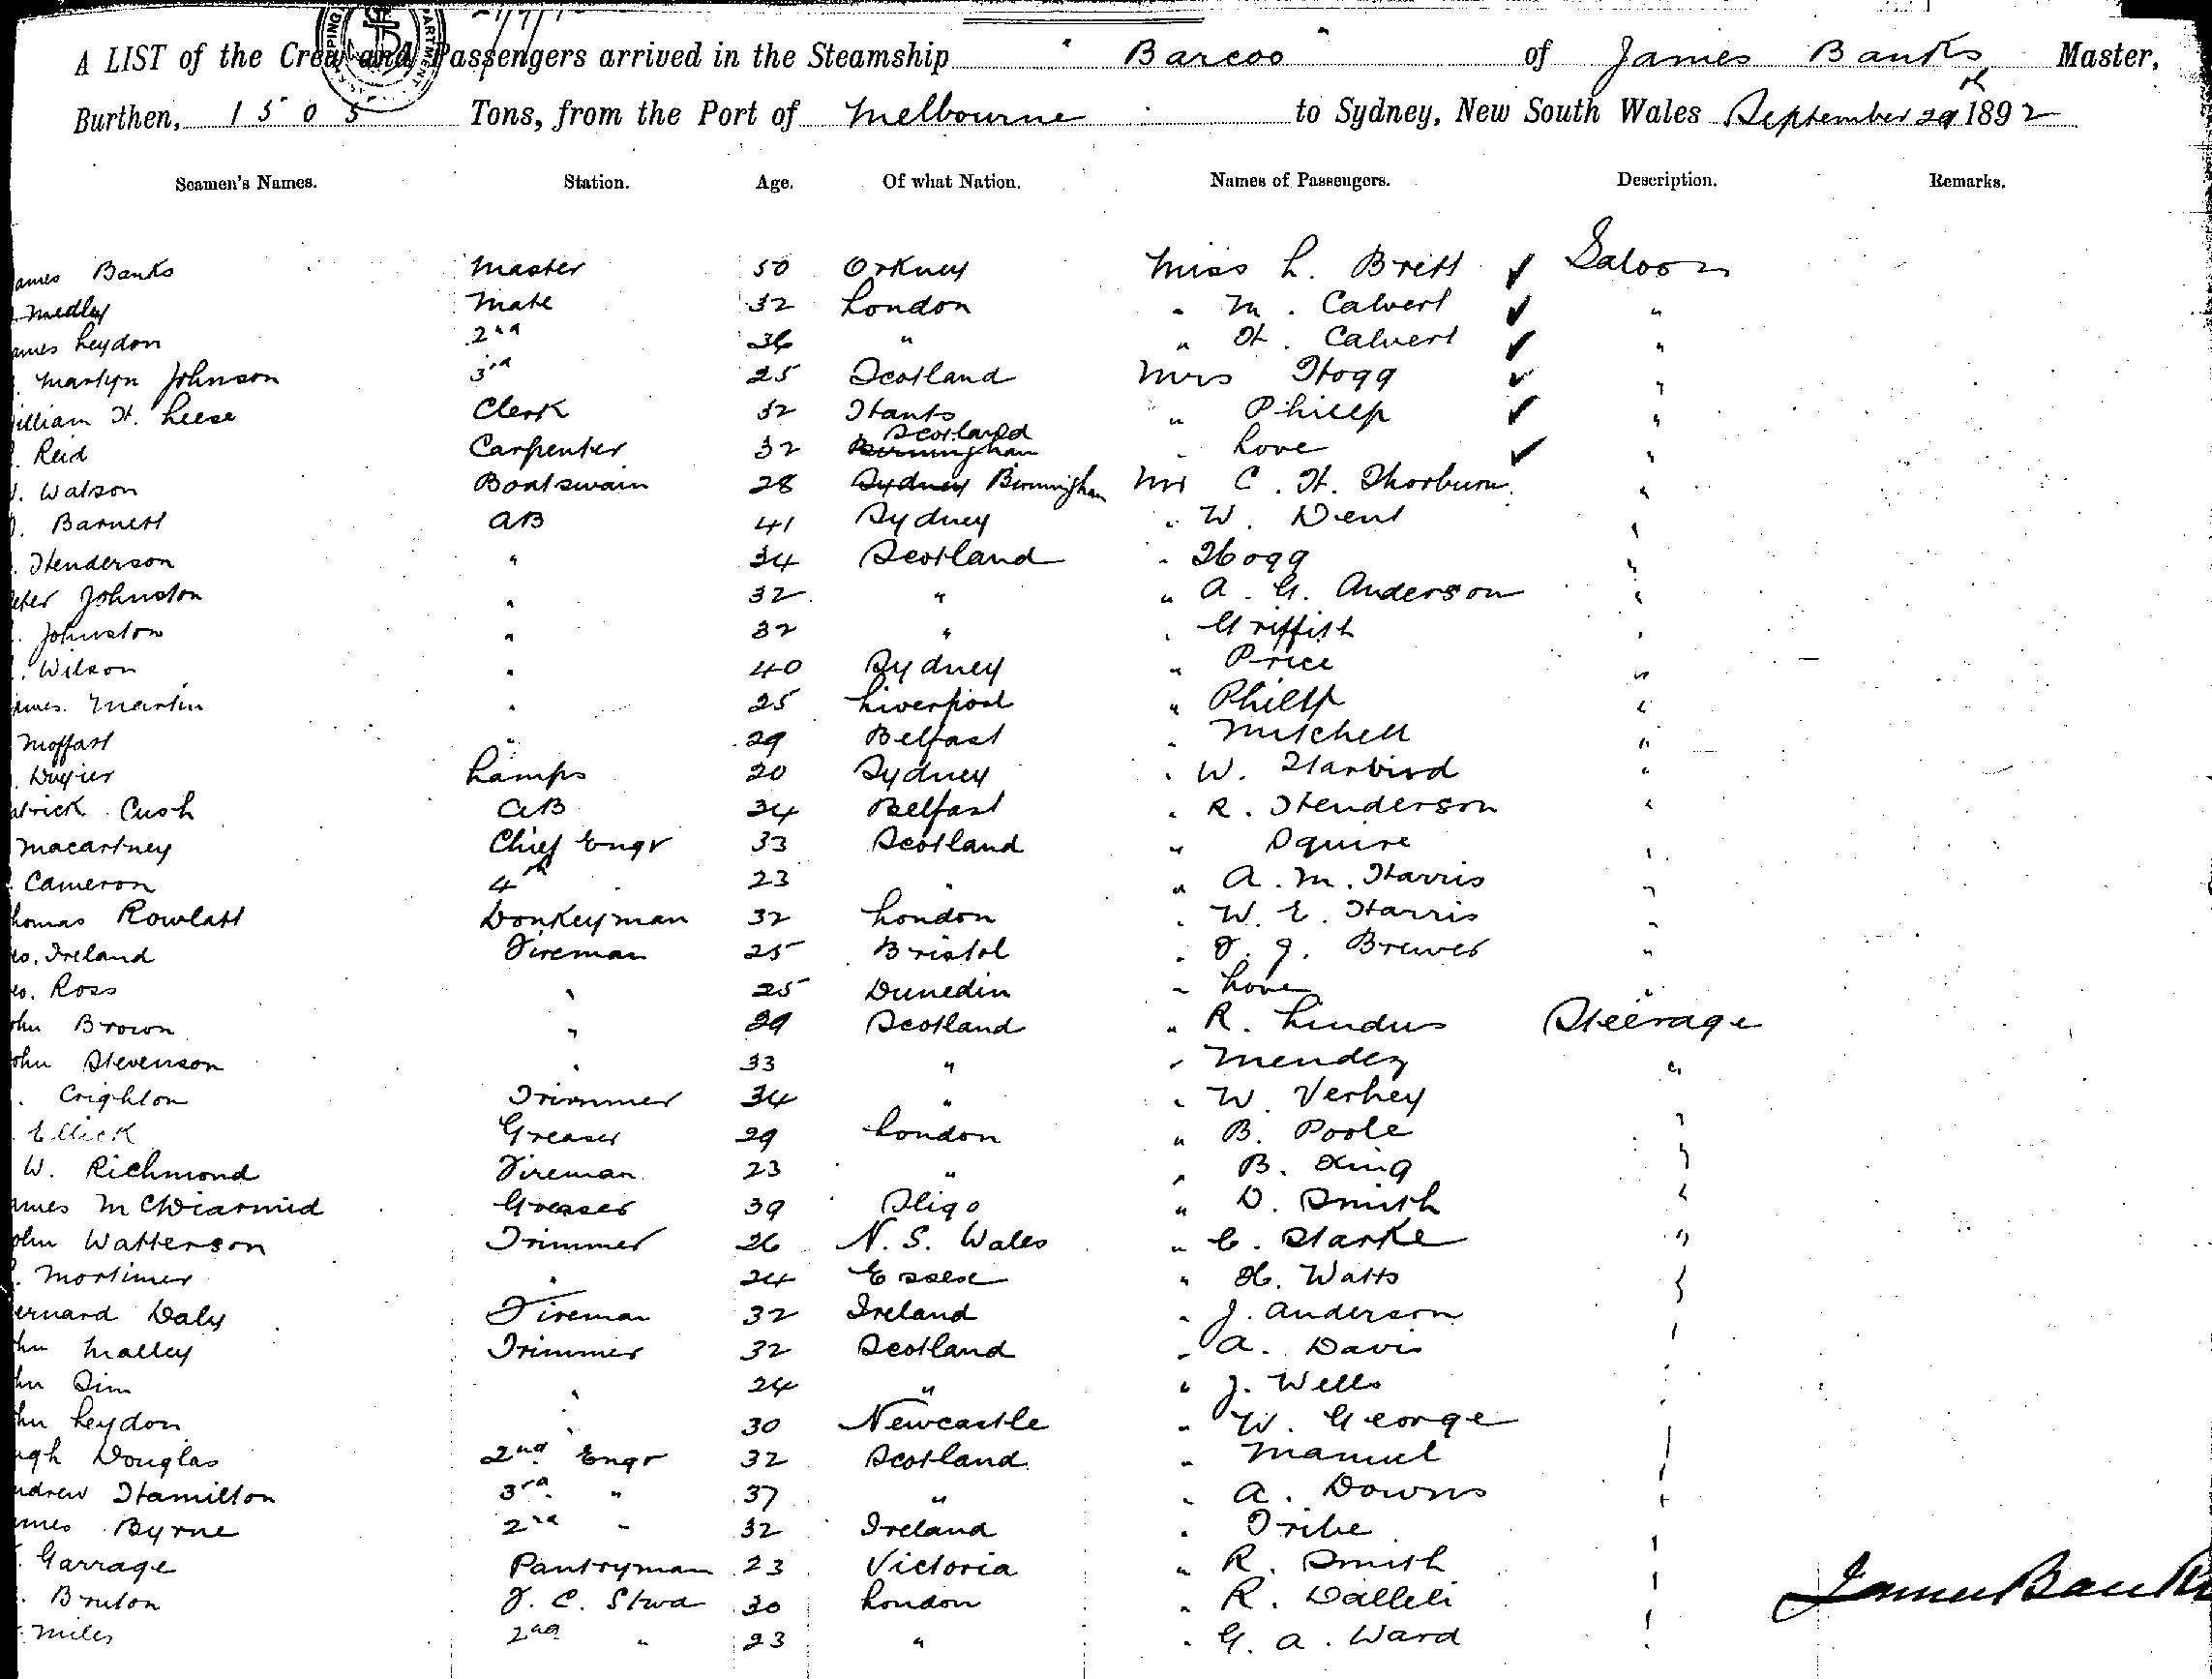 A LIST of the Crew and Passengers arrived in the Steamship "Barcoo" of James Banks Master,
Burthen, 1505 Tons, from the Port of Melbourne to Sydney, New South Wales September 29th 1892
Seamen's Names. Station. Age. Of what Nation. Names of Passengers. Description. Remarks.
ames Banks Master 50 Orkney Miss L. Brett ✓ Saloon
Medley Mate 32 London " M. Calvert ✓ "
ames Leydon 2nd 36 " " H. Calvert ✓ "
Martyn Johnson 3rd 25 Scotland Mrs Hogg ✓ "
illiam H. Leese Clerk 32 Hants " Philp ✓ "
Reid Carpenter 32 Birmingham Scotland " Love ✓ "
Watson Boatswain 28 Sydney Birmingham Mr C. H. Thorburn "
Barnett AB 41 Sydney " W. Dent "
Henderson " 34 Scotland " Hogg "
eter Johnston " 32 " " A. G. Anderson "
Johnston " 32 " " Griffith "
Wilson " 40 Sydney " Price "
ames Martin " 25 Liverpool " Philp "
Moffatt " 29 Belfast " Mitchell "
Lamps 20 Sydney " W. Harbird "
atrick Cush AB 34 Belfast " R. Henderson "
Macartney Chief Engr 33 Scotland " Squire "
Cameron 4th " 23 " " A. M. Harris "
homas Rowlatt Donkeyman 32 London " W. E. Harris "
eo. Ireland Fireman 25 Bristol " F. J. Brewer "
eo. Ross " 25 Dunedin " Love "
ohn Brown " 29 Scotland " R. Lindus Steerage
ohn Stevenson " 33 " " Mendez "
Crighton Trimmer 34 " " W. Verhey
Ellick Greaser 29 London " B. Poole "
W. Richmond Fireman 23 " " B. King "
ames McDiarmid Greaser 39 Sligo " D. Smith "
ohn Watterson Trimmer 26 N. S. Wales " C. Starke "
Mortimer " 24 Essex " H. Watts "
ernard Daly Fireman 32 Ireland " J. Anderson "
hn Malley Trimmer 32 Scotland " A. Davis "
hn Sim " 24 " " J. Wells "
hn Leydon " 30 Newcastle " W. George "
ugh Douglas 2nd Engr 32 Scotland " Manuel "
ndrew Hamilton 3rd " 37 " " A. Downs "
ames Byrne 2nd " 32 Ireland " Tribe "
Garrage Pantryman 23 Victoria " R. Smith "
Bruton F. C. Stwd 30 London " R. Dalleli " James Banks
Miles 2nd " 23 " " G. A. Ward "